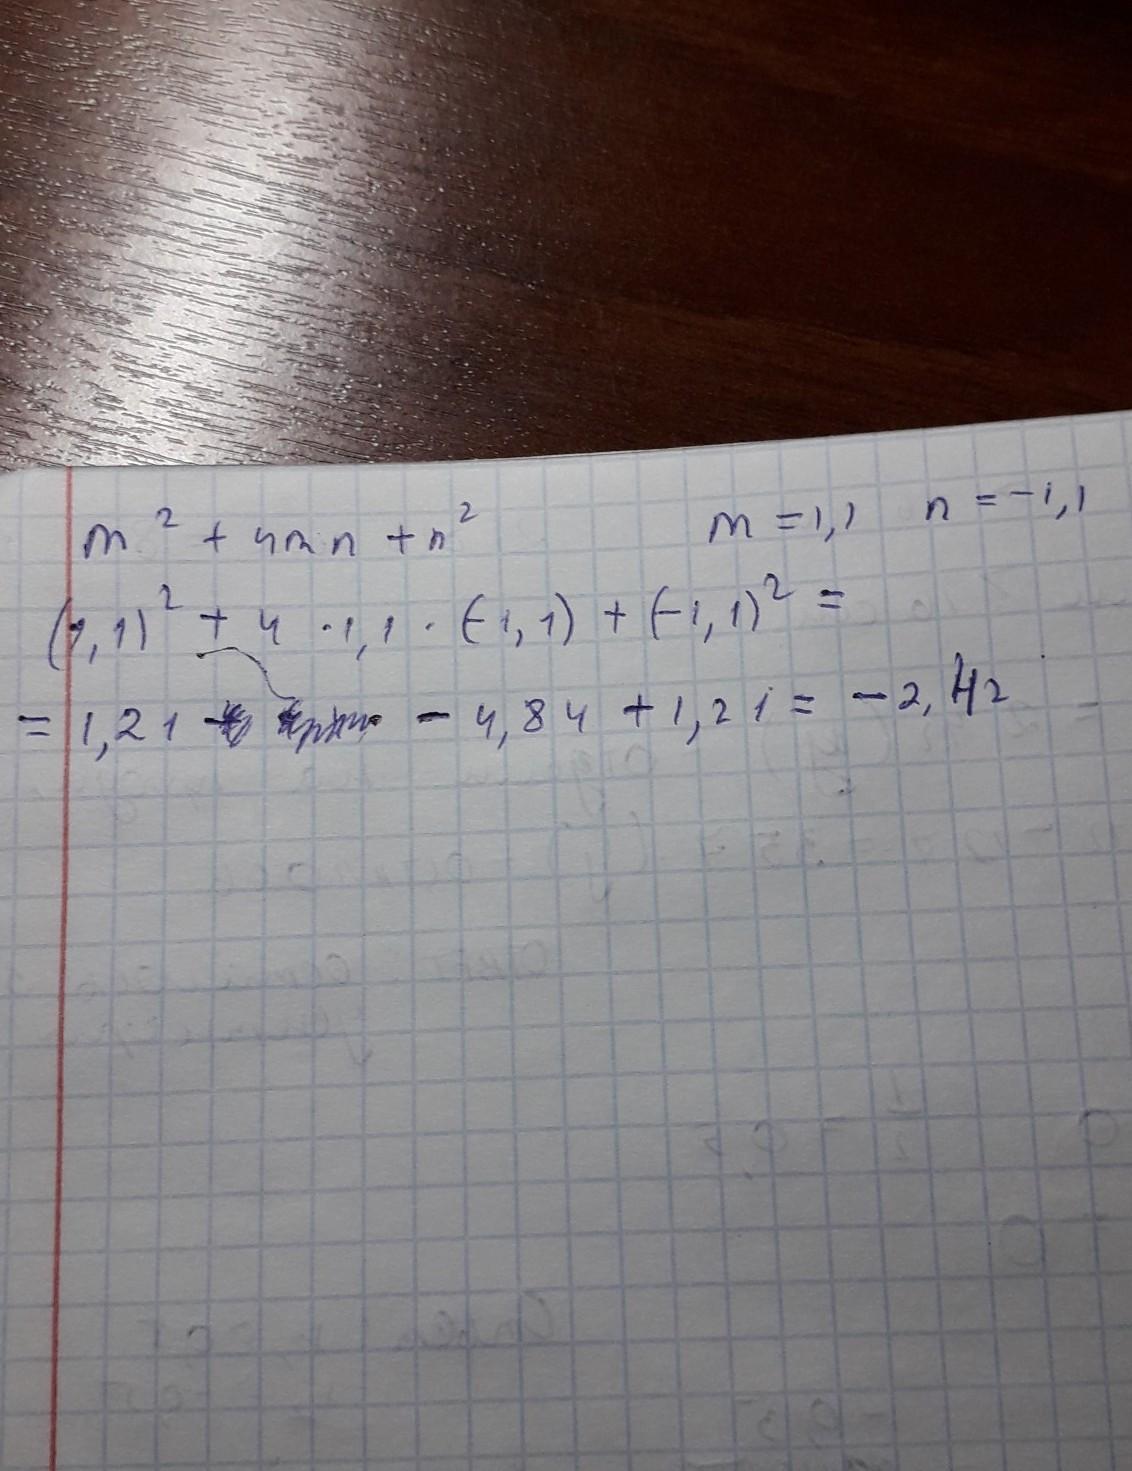 m² + 4mn + n² m = 1,1 n = -1,1
(1,1)² + 4 · 1,1 · (-1,1) + (-1,1)² =
= 1,21 - 4,84 + 1,21 = -2,42